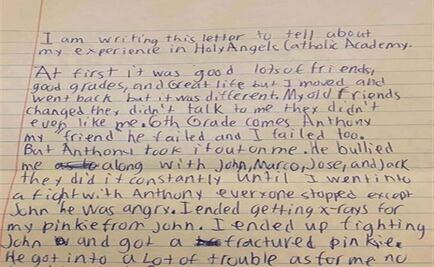 I am writing this letter to tell about
my experience in Holy Angels Catholic Academy.
At first it was good lots of friends,
good grades, and Great life but I moved and
went back but it was different. My old friends
changed they didn't talk to me they didn't
even like me. 6th Grade comes Anthony
my friend he failed and I failed too.
But Anthony took it out on me. He bullied
me along with John, Marco, Jose, and Jack
they did it constantly until I went into
a fight with Anthony everyone stopped except
John he was angry. I ended getting x-rays for
my pinkie from John. I ended up fighting
John and got a fractured pinkie.
He got into a Lot of trouble as for me no